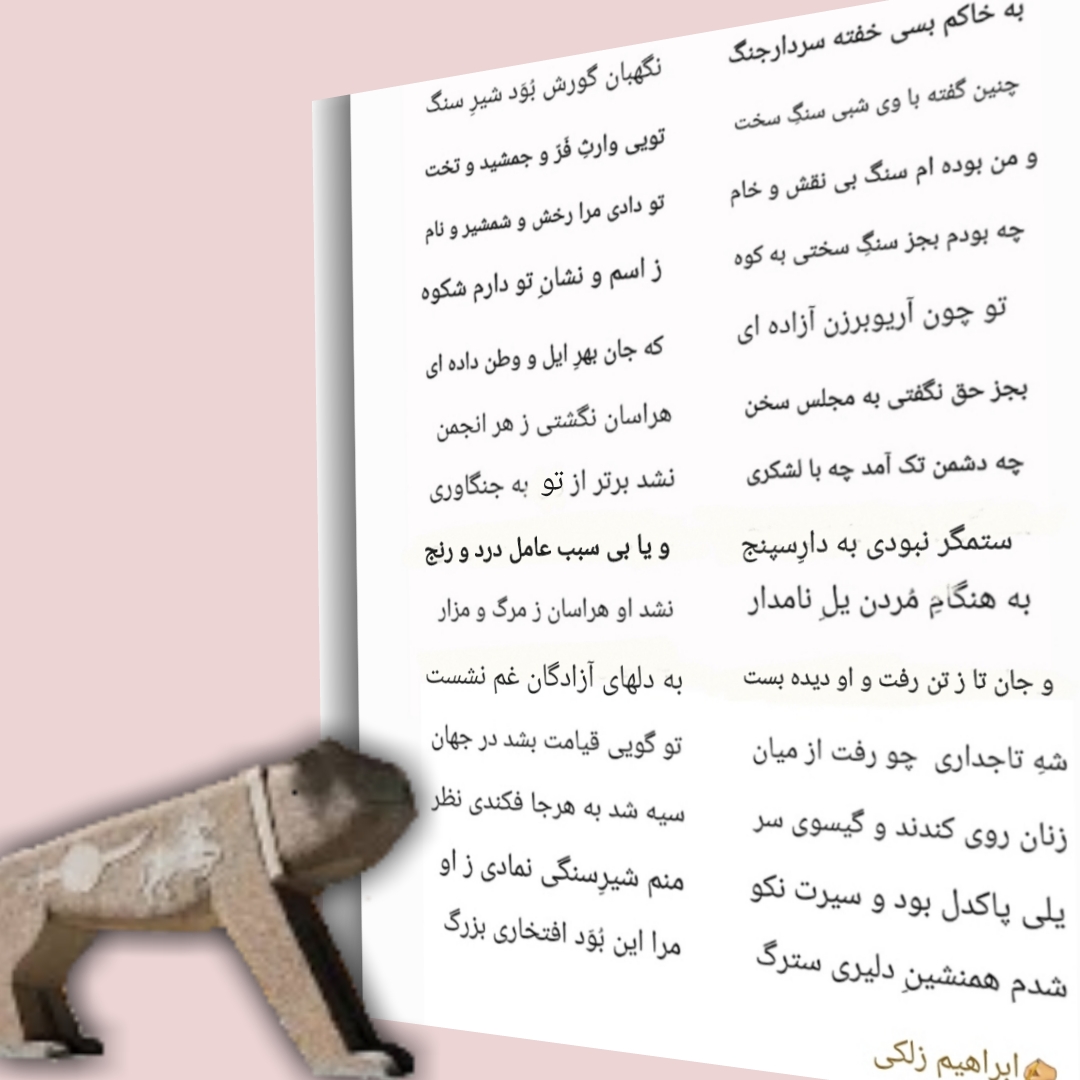 به خاکم بسی خفته سردارجنگ
نگهبان گورش بُوَد شیرِ سنگ
چنین گفته با وی شبی سنگِ سخت
تویی وارثِ فَرّ و جمشید و تخت
و من بوده ام سنگ بی نقش و خام
تو دادی مرا رخش و شمشیر و نام
چه بودم بجز سنگِ سختی به کوه
ز اسم و نشانِ تو دارم شکوه
تو چون آریوبرزن آزاده ای
که جان بهرِ ایل و وطن داده ای
بجز حق نگفتی به مجلس سخن
هراسان نگشتی ز هر انجمن
چه دشمن تک آمد چه با لشکری
نشد برتر از تو به جنگاوری
ستمگر نبودی به دارِسپنج
و یا بی سبب عامل درد و رنج
به هنگامِ مُردن یلِ نامدار
نشد او هراسان ز مرگ و مزار
و جان تا ز تن رفت و او دیده بست
به دلهای آزادگان غم نشست
شهِ تاجداری چو رفت از میان
تو گویی قیامت بشد در جهان
زنان روی کندند و گیسوی سر
سیه شد به هرجا فکندی نظر
یلی پاکدل بود و سیرت نکو
منم شیرِسنگی نمادی ز او
شدم همنشینِ دلیری سترگ
مرا این بُوَد افتخاری بزرگ
ابراهیم زلکی